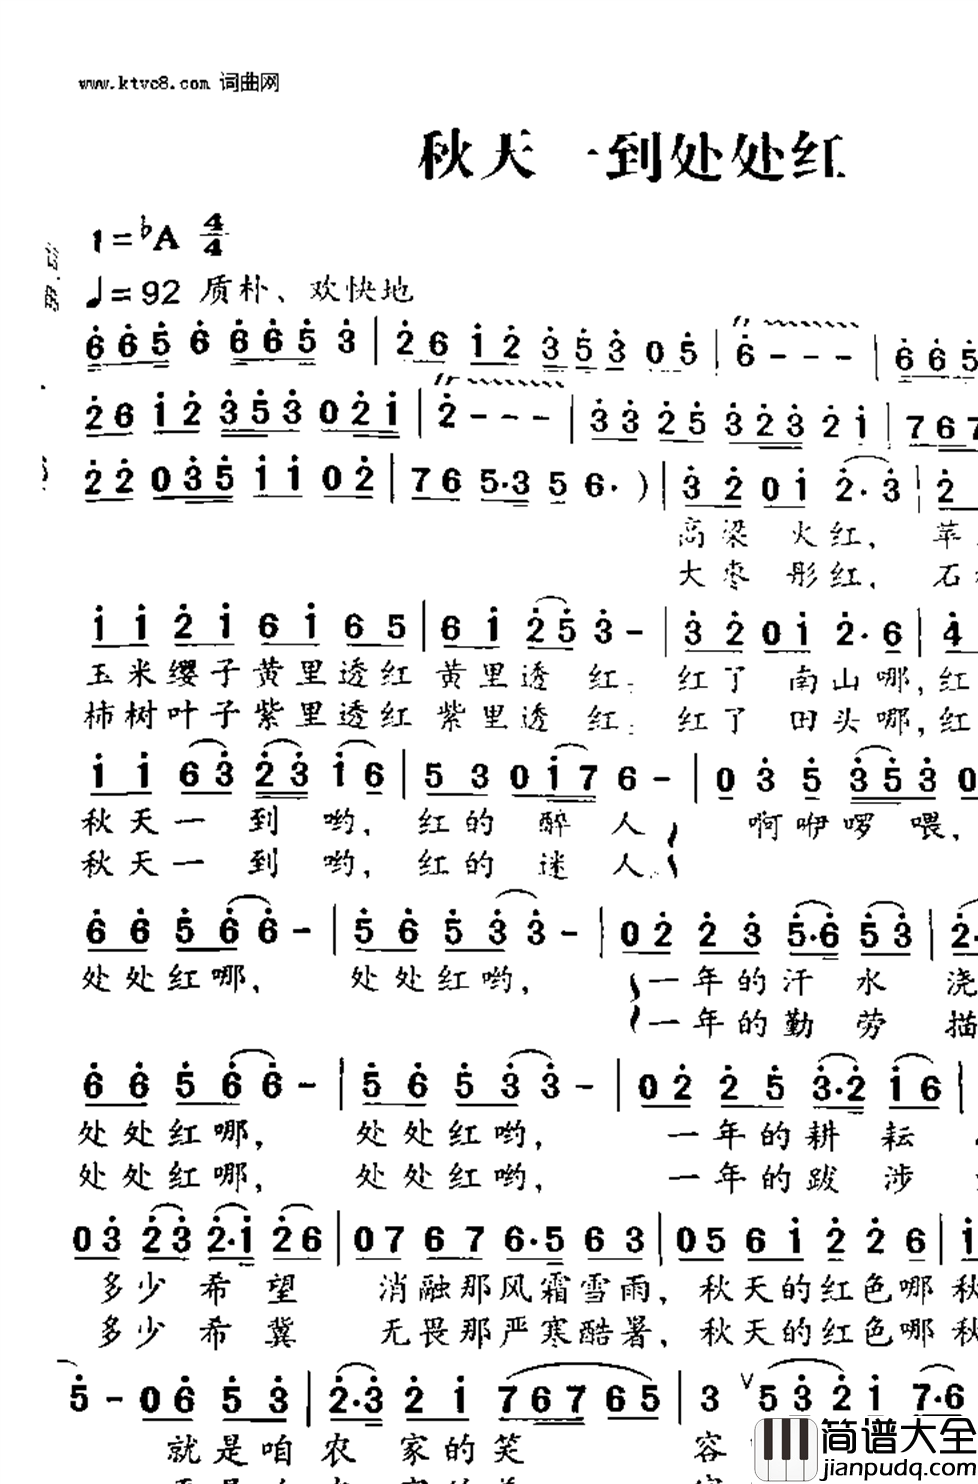 www.ktvc8.com 词曲网
秋天一到处处红
1=♭A 4/4
♩=92 质朴、欢快地
6 6 5 6 6 6 5 3 | 2 6 1 2 3 5 3 0 5 | 6 - - - | 6 6 5
2 6 1 2 3 5 3 0 2 1 | 2 - - - | 3 3 2 5 3 2 3 2 1 | 7 6 7
2 2 0 3 5 1 1 0 2 | 7 6 5·3 5 6· ) | 3 2 0 1 2·3 | 2
高粱 火红, 苹
大枣 彤红, 石
1 1 2 1 6 1 6 5 | 6 1 2 5 3 - | 3 2 0 1 2·6 | 4
玉米缨子黄里透红 黄里透 红; 红了 南山哪,红
柿树叶子紫里透红 紫里透 红; 红了 田头哪,红
1 1 6 3 2 3 1 6 | 5 3 0 1 7 6 - | 0 3 5 3 5 3 0
秋天一 到 哟, 红的 醉 人 啊咿啰 喂,
秋天一 到 哟, 红的 迷 人
6 6 5 6 6 - | 5 6 5 3 3 - | 0 2 2 3 5·6 5 3 | 2·
处处红哪, 处处红哟, 一年的汗 水 浇
一年的勤 劳 描
6 6 5 6 6 - | 5 6 5 3 3 - | 0 2 2 5 3·2 1 6 |
处处红哪, 处处红哟, 一年的耕 耘
处处红哪, 处处红哟, 一年的跋 涉
0 3 2 3 2·1 2 6 | 0 7 6 7 6·5 6 3 | 0 5 6 1 2 2 6 | 1
多少 希 望 消融那风霜雪雨, 秋天的红色哪 秋
多少 希 冀 无畏那严寒酷署, 秋天的红色哪 秋
5 - 0 6 5 3 | 2·3 2 1 7 6 7 6 5 | 3 ∨ 5 3 2 1 7·6
就是咱 农 家的笑 容
简谱大全
jianpudq.com